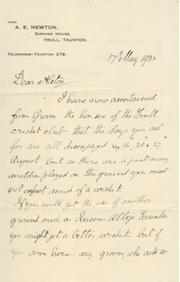 FROM
A. E. NEWTON,
TRULL, TAUNTON.
TELEPHONE-TAUNTON 278.
17th May 1932
Dear
I have now ascertained
from Green the hon sec of the Trull
cricket club that the days you ask
for are all disengaged viz 26 &
August but as there are a great many
matches played on the ground you must
not expect much of a wicket
If you could get the use of another
ground such as Queens College Taunton
you might get a better wicket but if
you come here my groom who acts as